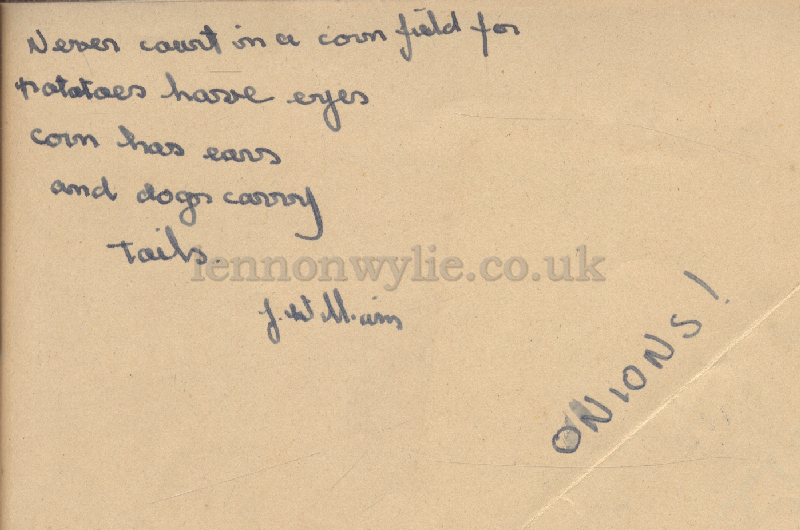 Never court in a corn field for
potatoes have eyes
corn has ears
and dogs carry
tails.
lennonwylie.co.uk
J. Williams
ONIONS!